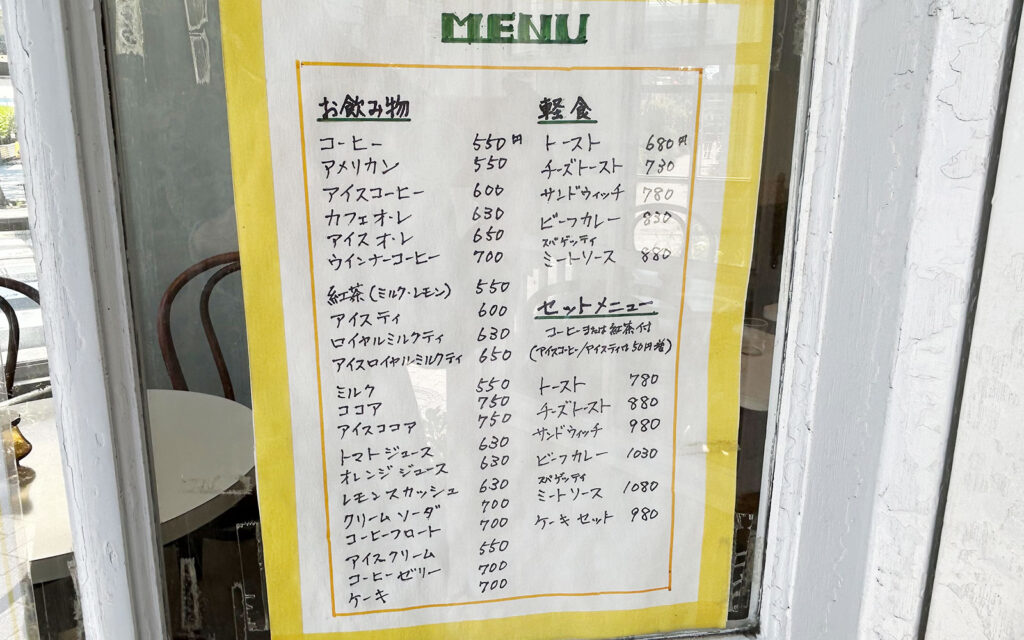 MENU
お飲み物
コーヒー 550円
アメリカン 550
アイスコーヒー 600
カフェオ・レ 630
アイスオ・レ 650
ウインナーコーヒー 700
紅茶(ミルク・レモン) 550
アイスティ 600
ロイヤルミルクティ 630
アイスロイヤルミルクティ 650
ミルク 550
ココア 750
アイスココア 750
トマトジュース 630
オレンジジュース 630
レモンスカッシュ 630
クリームソーダ 700
コーヒーフロート 700
アイスクリーム 550
コーヒーゼリー 700
ケーキ 700
軽食
トースト 680円
チーズトースト 730
サンドウィッチ 780
ビーフカレー 830
スパゲッティ
ミートソース 880
セットメニュー
コーヒーまたは紅茶付
(アイスコーヒー/アイスティは50円増)
トースト 780
チーズトースト 880
サンドウィッチ 980
ビーフカレー 1030
スパゲッティ
ミートソース 1080
ケーキセット 980